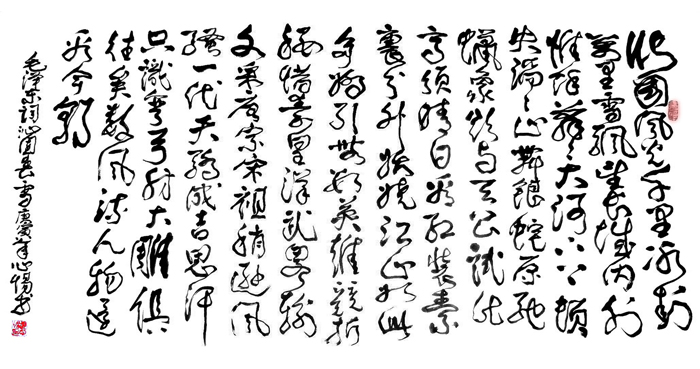 北國风光千里冰封
万里雪飘望长城内外
惟余莽莽大河上下顿
失滔滔山舞银蛇原驰
蜡象欲与天公试比
高须晴日看红装素
裹分外妖娆江山如此
多娇引无数英雄竞折
腰惜秦皇汉武略输
文采唐宗宋祖稍逊风
骚一代天骄成吉思汗
只识弯弓射大雕俱
往矣数风流人物还
看今朝
毛泽东词沁园春雪